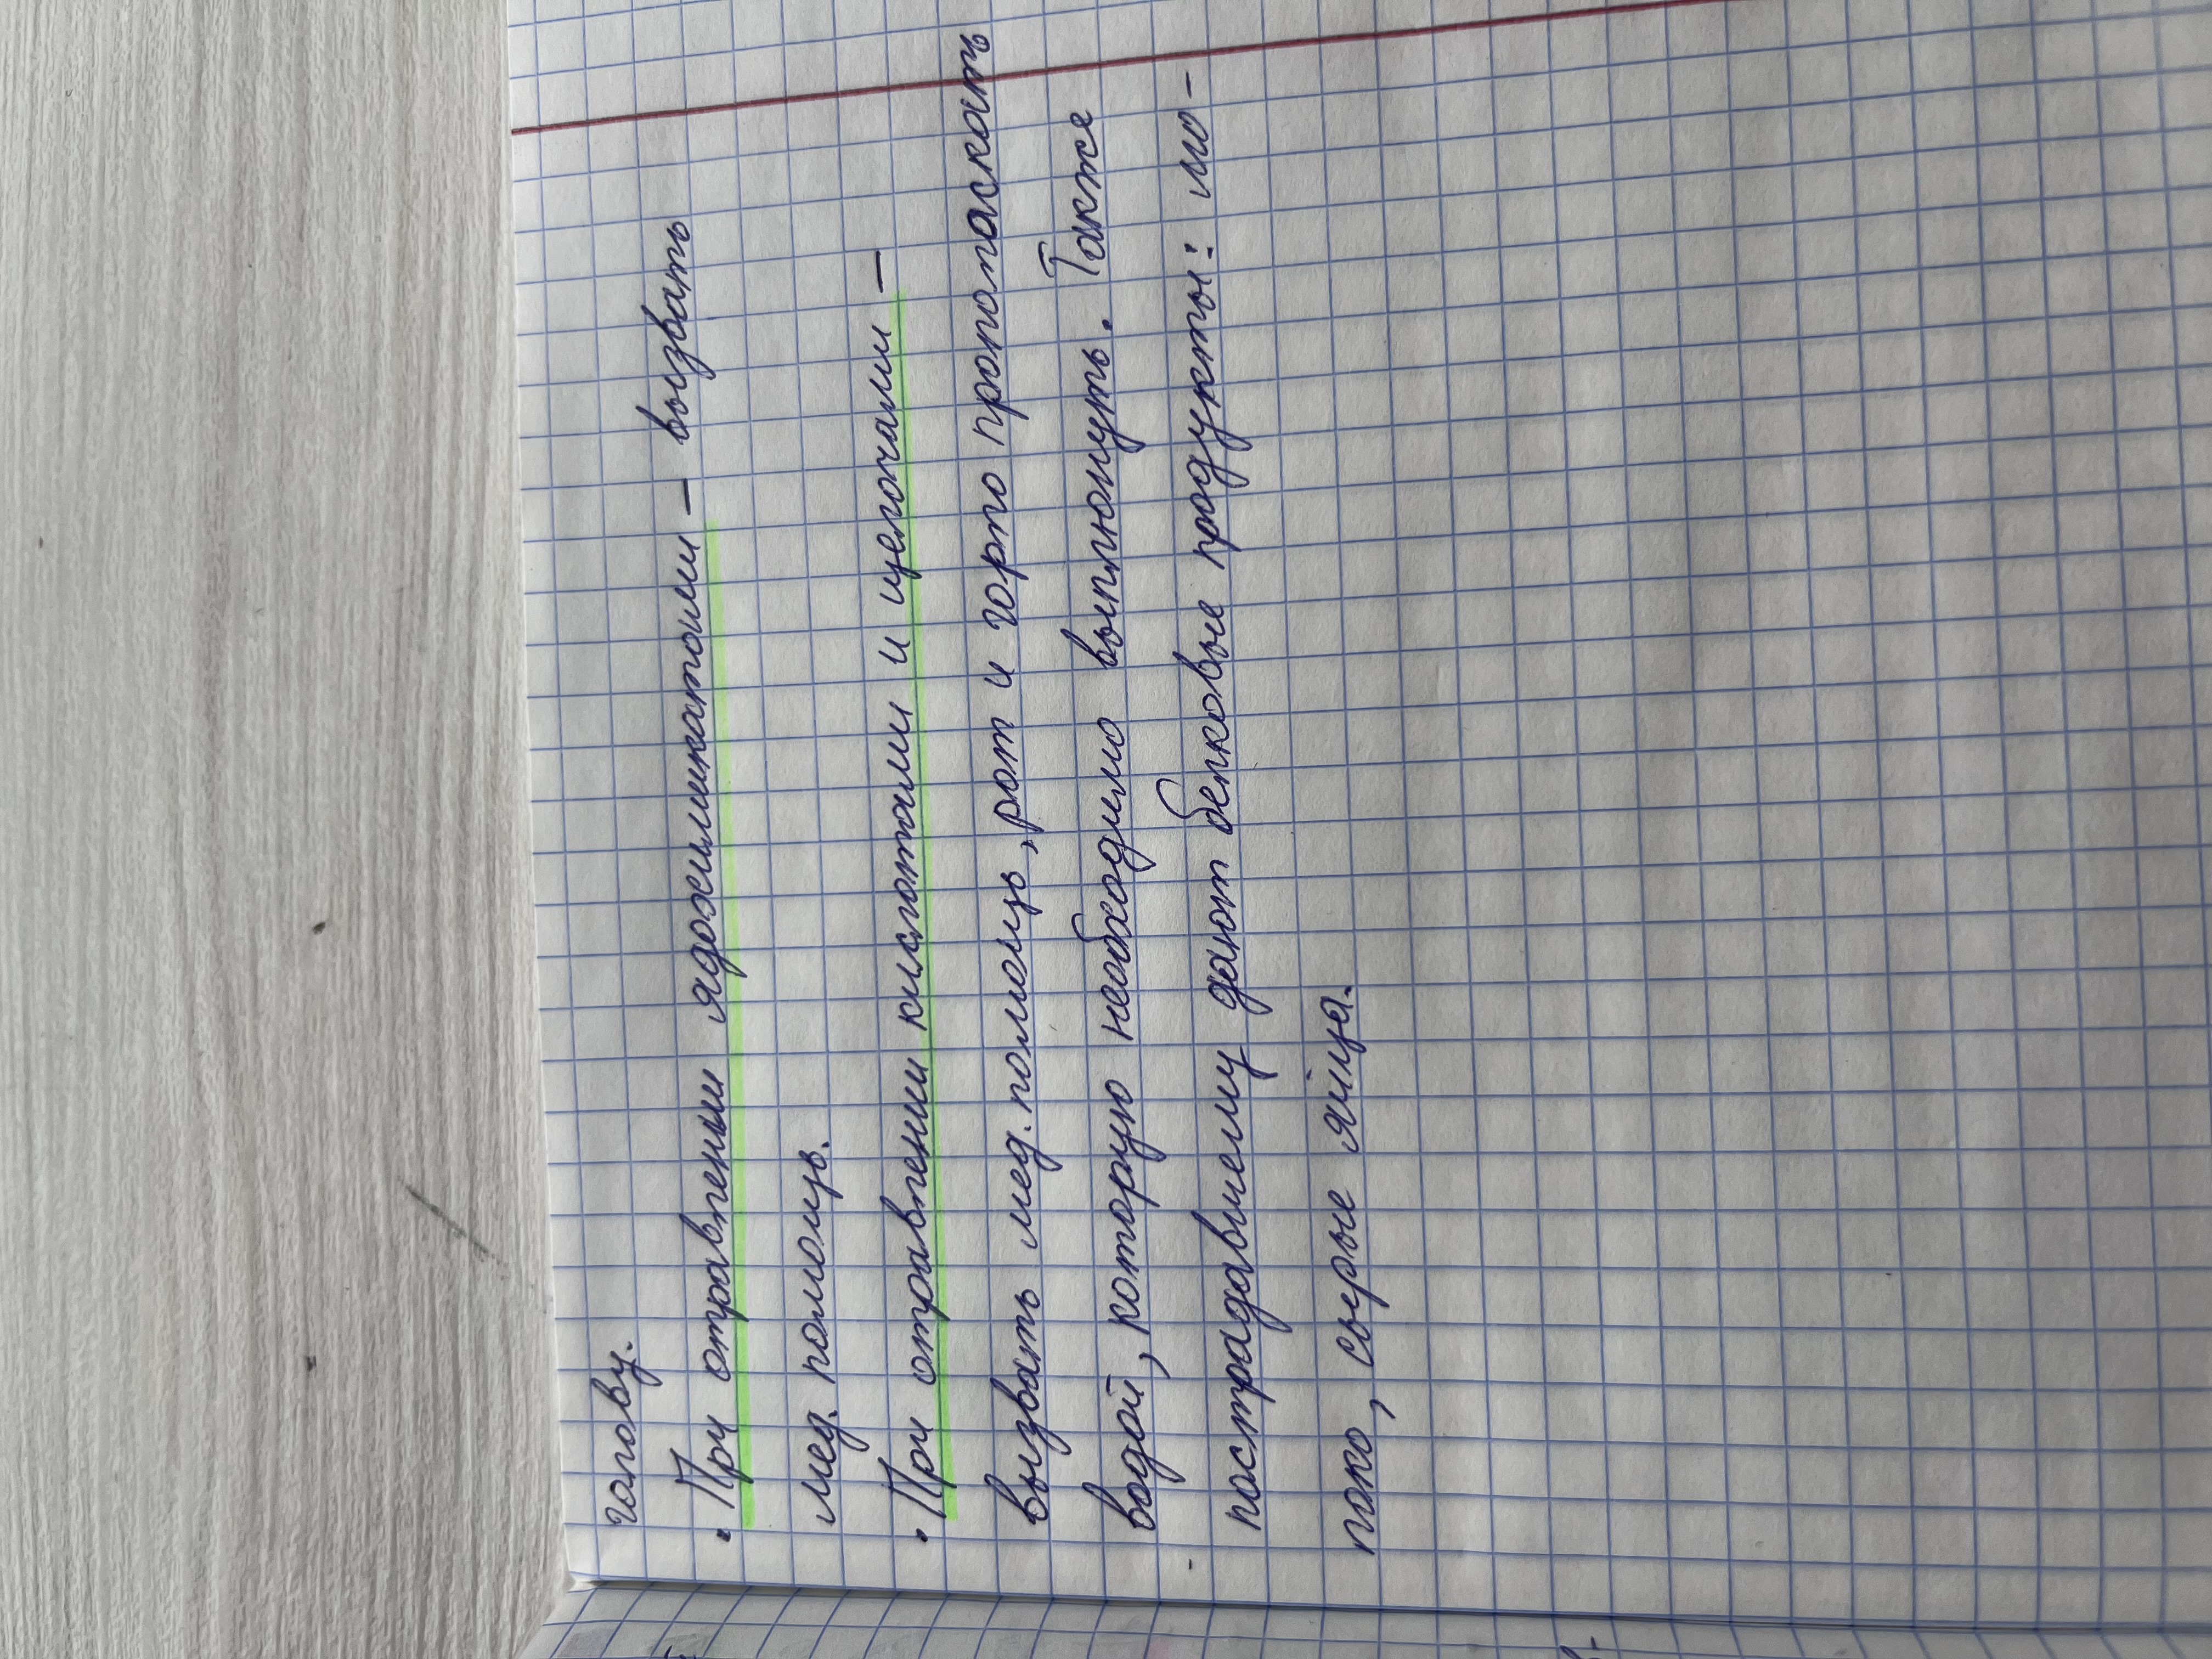 голову.
· При отравлении ядохимикатами – вызвать
мед. помощь.
· При отравлении кислотами и щелочами –
вызвать мед. помощь, рот и горло прополаскать
водой, которую необходимо выплюнуть. Также
пострадавшему дают белковые продукты: мо-
локо, сырые яйца.